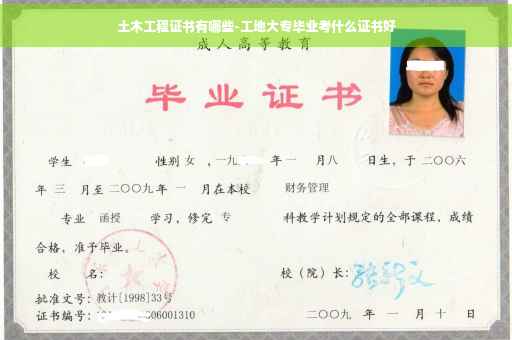 土木工程证书有哪些-工地大专毕业考什么证书好
成人高等教育
毕业证书
学生 性别 女 ，一九 年 一 月八 日生，于 二〇〇六
年 三 月至 二〇〇九 年 一 月在本校 财务管理
专业 函授 学习，修完 专 科教学计划规定的全部课程，成绩
合格，准予毕业。
校 名： 校（院）长：
批准文号：教计[1998]33号
证书编号： 06001310 二〇〇九 年 一 月 十 日